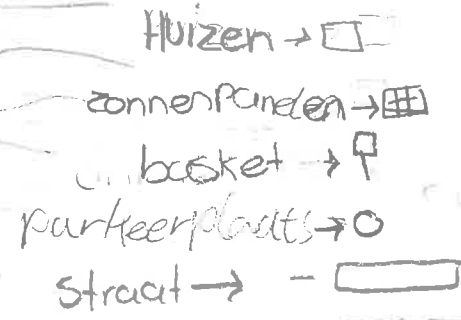 Huizen →
zonnenPanelen →
basket →
parkeerplaats →
straat →